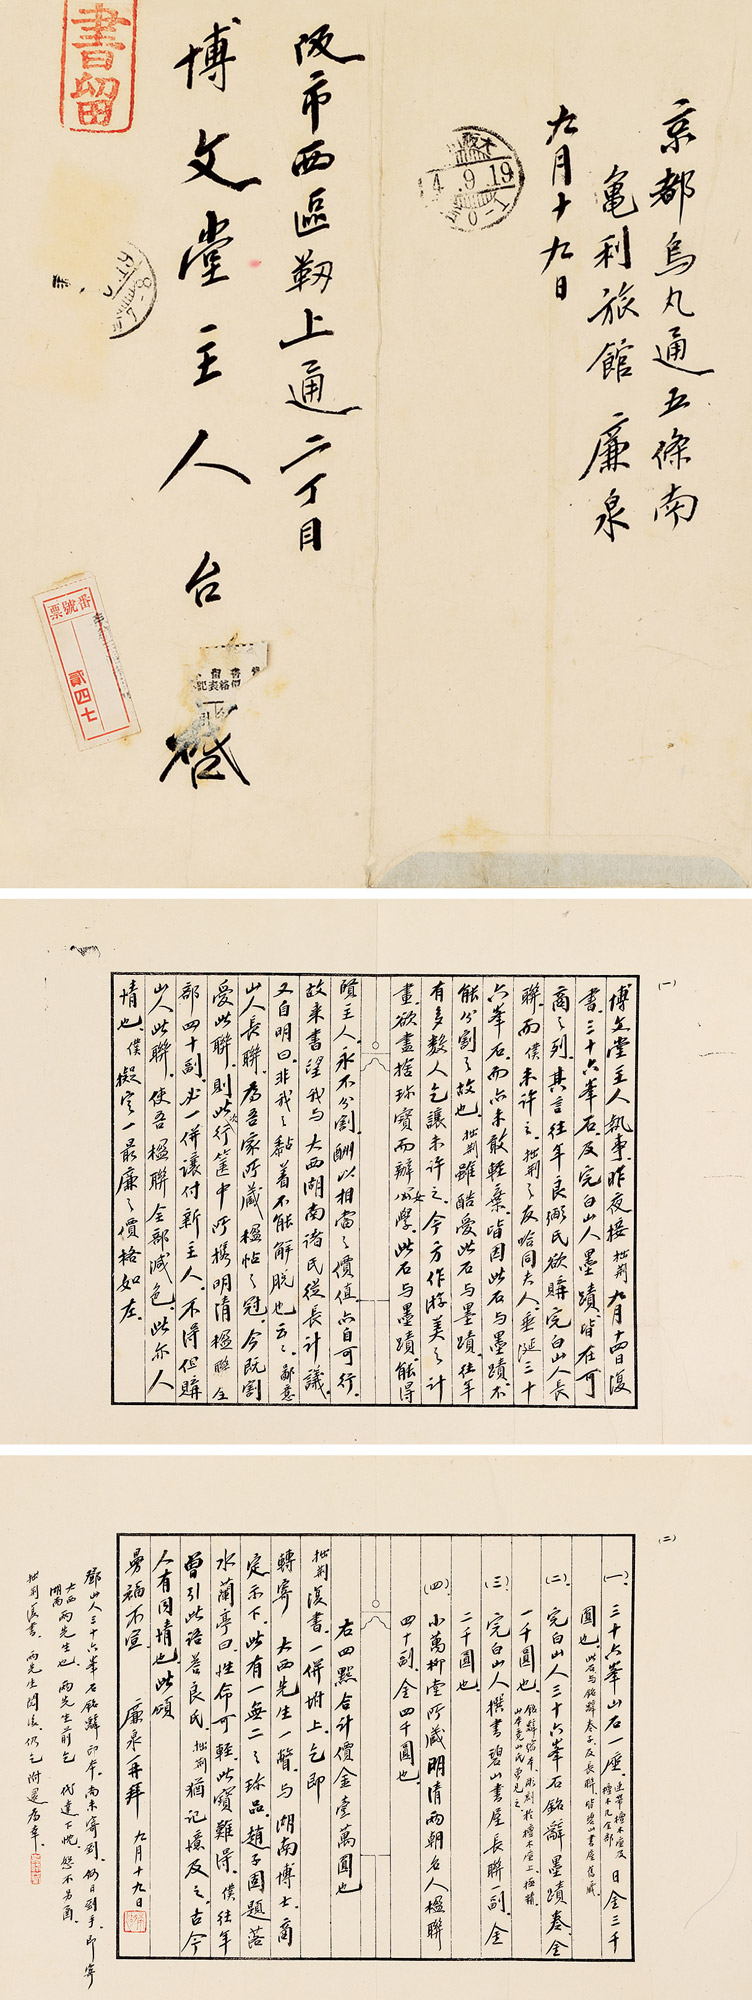 京都烏丸通五條南
亀利旅館 廉泉
九月十九日
4.9.19
阪市西區靱上通二丁目
博文堂主人台啟
書留
番號票
貳四七
(一)
博文堂主人執事昨夜接拙荊九月十四日復
書三十六峯石及完白山人墨蹟皆在可
商之列其言往年良弼氏欲購完白山人長
聯而僕未許之拙荊之友哈同夫人垂涎三十
六峯石而亦未敢輕棄皆因此石与墨蹟不
能分割之故也拙荊雖酷愛此石与墨蹟往年
有多數人乞讓未許之今方作游美之計
畫欲盡捨珍寶而辦女學此石与墨蹟能得
賢主人永不分割酬以相當之價值亦自可行
故來書望我与大西湖南諸氏從長計議
又自明曰非我之黏着不能解脫也云之鄙意
山人長聯為吾家所藏楹帖之冠今既割
愛此聯則此次行篋中所攜明清楹聯全
部四十副必一併讓付新主人不得但購
山人此聯使吾楹聯全部減色此亦人
情也僕擬定一最廉之價格如左
(二)
(一) 三十六峯山石一座連帶檀木座及檀木几全部 日金三千
圓也此石与銘辭卷子及長聯皆碧山書屋舊藏
(二) 完白山人三十六峯石銘辭墨蹟卷金
一千圓也銘辭縮本彫刻於檀木座上極精山本竟山氏曾見之
(三) 完白山人撰書碧山書屋長聯一副金
二千圓也
(四) 小萬柳堂所藏明清兩朝名人楹聯
四十副金四千圓也
右四點合計價金壹萬圓也
拙荊復書一併坿上乞即
轉寄 大西先生一瞥与湖南博士商
定示下此有一無二之珍品趙子固題落
水蘭亭曰性命可輕此寶難得僕往年
曾引此語答良氏拙荊猶記憶及之古今
人有同情也此頌
曼福不宣 廉泉再拜 九月十九日
鄧山人三十六峯石銘辭印本尚未寄到何日到手即寄
大西湖南兩先生也兩先生前乞代達下忱恕不另函
拙荊復書兩先生閱後仍乞附還為幸